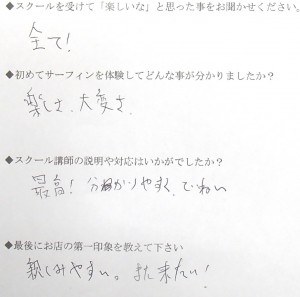 ◆スクールを受けて「楽しいな」と思った事をお聞かせください。
全て！
◆初めてサーフィンを体験してどんな事が分かりましたか？
楽しさ、大変さ
◆スクール講師の説明や対応はいかがでしたか？
最高！ 分かりやすく、ていねい
◆最後にお店の第一印象を教えて下さい
親しみやすい。また来たい！